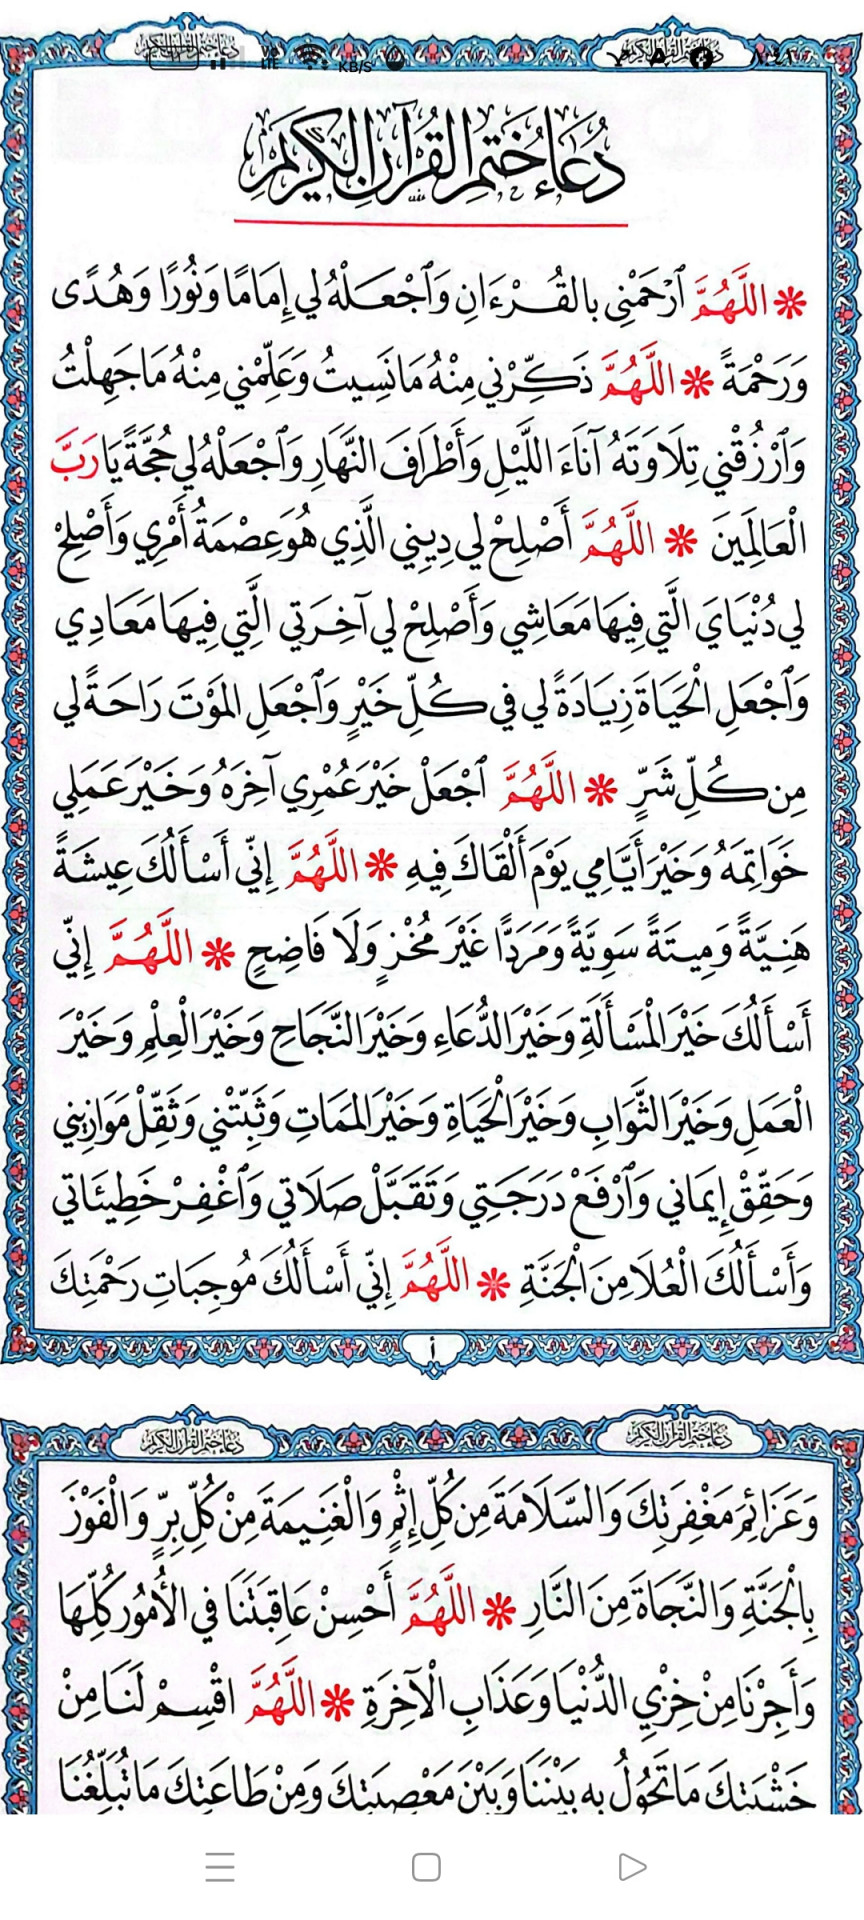 دعاء ختم القرآن الكريم
KB/S
دُعَاءُ خَتْمِ الْقُرْآنِ الْكَرِيمِ
❋ اللَّهُمَّ ٱرْحَمْنِي بالقُرْءَانِ وَٱجْعَلْهُ لي إِمَامًا وَنُورًا وَهُدًى
وَرَحْمَةً ❋ اللَّهُمَّ ذَكِّرْنِي مِنْهُ مَا نَسِيتُ وَعَلِّمْنِي مِنْهُ مَا جَهِلْتُ
وَٱرْزُقْنِي تِلَاوَتَهُ آنَاءَ اللَّيْلِ وَأَطْرَافَ النَّهَارِ وَٱجْعَلْهُ لِي حُجَّةً يَا رَبَّ
الْعَالَمِينَ ❋ اللَّهُمَّ أَصْلِحْ لِي دِينِي الَّذِي هُوَ عِصْمَةُ أَمْرِي وَأَصْلِحْ
لِي دُنْيَايَ الَّتِي فِيهَا مَعَاشِي وَأَصْلِحْ لِي آخِرَتِي الَّتِي فِيهَا مَعَادِي
وَٱجْعَلِ الْحَيَاةَ زِيَادَةً لِي فِي كُلِّ خَيْرٍ وَٱجْعَلِ المَوْتَ رَاحَةً لِي
مِن كُلِّ شَرٍّ ❋ اللَّهُمَّ ٱجْعَلْ خَيْرَ عُمْرِي آخِرَهُ وَخَيْرَ عَمَلِي
خَوَاتِمَهُ وَخَيْرَ أَيَّامِي يَوْمَ أَلْقَاكَ فِيهِ ❋ اللَّهُمَّ إِنِّي أَسْأَلُكَ عِيشَةً
هَنِيَّةً وَمِيتَةً سَوِيَّةً وَمَرَدًّا غَيْرَ مُخْزٍ وَلَا فَاضِحٍ ❋ اللَّهُمَّ إِنِّي
أَسْأَلُكَ خَيْرَ الْمَسْأَلَةِ وَخَيْرَ الدُّعَاءِ وَخَيْرَ النَّجَاحِ وَخَيْرَ الْعِلْمِ وَخَيْرَ
الْعَمَلِ وَخَيْرَ الثَّوَابِ وَخَيْرَ الْحَيَاةِ وَخَيْرَ المَمَاتِ وَثَبِّتْنِي وَثَقِّلْ مَوَازِينِي
وَحَقِّقْ إِيمَانِي وَٱرْفَعْ دَرَجَتِي وَتَقَبَّلْ صَلَاتِي وَٱغْفِرْ خَطِيئَاتِي
وَأَسْأَلُكَ الْعُلَا مِنَ الْجَنَّةِ ❋ اللَّهُمَّ إِنِّي أَسْأَلُكَ مُوجِبَاتِ رَحْمَتِكَ
أ
دعاء ختم القرآن الكريم دعاء ختم القرآن الكريم
وَعَزَائِمَ مَغْفِرَتِكَ وَالسَّلَامَةَ مِن كُلِّ إِثْمٍ وَالْغَنِيمَةَ مِنْ كُلِّ بِرٍّ وَالْفَوْزَ
بِالْجَنَّةِ وَالنَّجَاةَ مِنَ النَّارِ ❋ اللَّهُمَّ أَحْسِنْ عَاقِبَتَنَا فِي الأُمُورِ كُلِّهَا
وَأَجِرْنَا مِنْ خِزْيِ الدُّنْيَا وَعَذَابِ الْآخِرَةِ ❋ اللَّهُمَّ اقْسِمْ لَنَا مِنْ
خَشْيَتِكَ مَا تَحُولُ بِهِ بَيْنَنَا وَبَيْنَ مَعْصِيَتِكَ وَمِنْ طَاعَتِكَ مَا تُبَلِّغُنَا